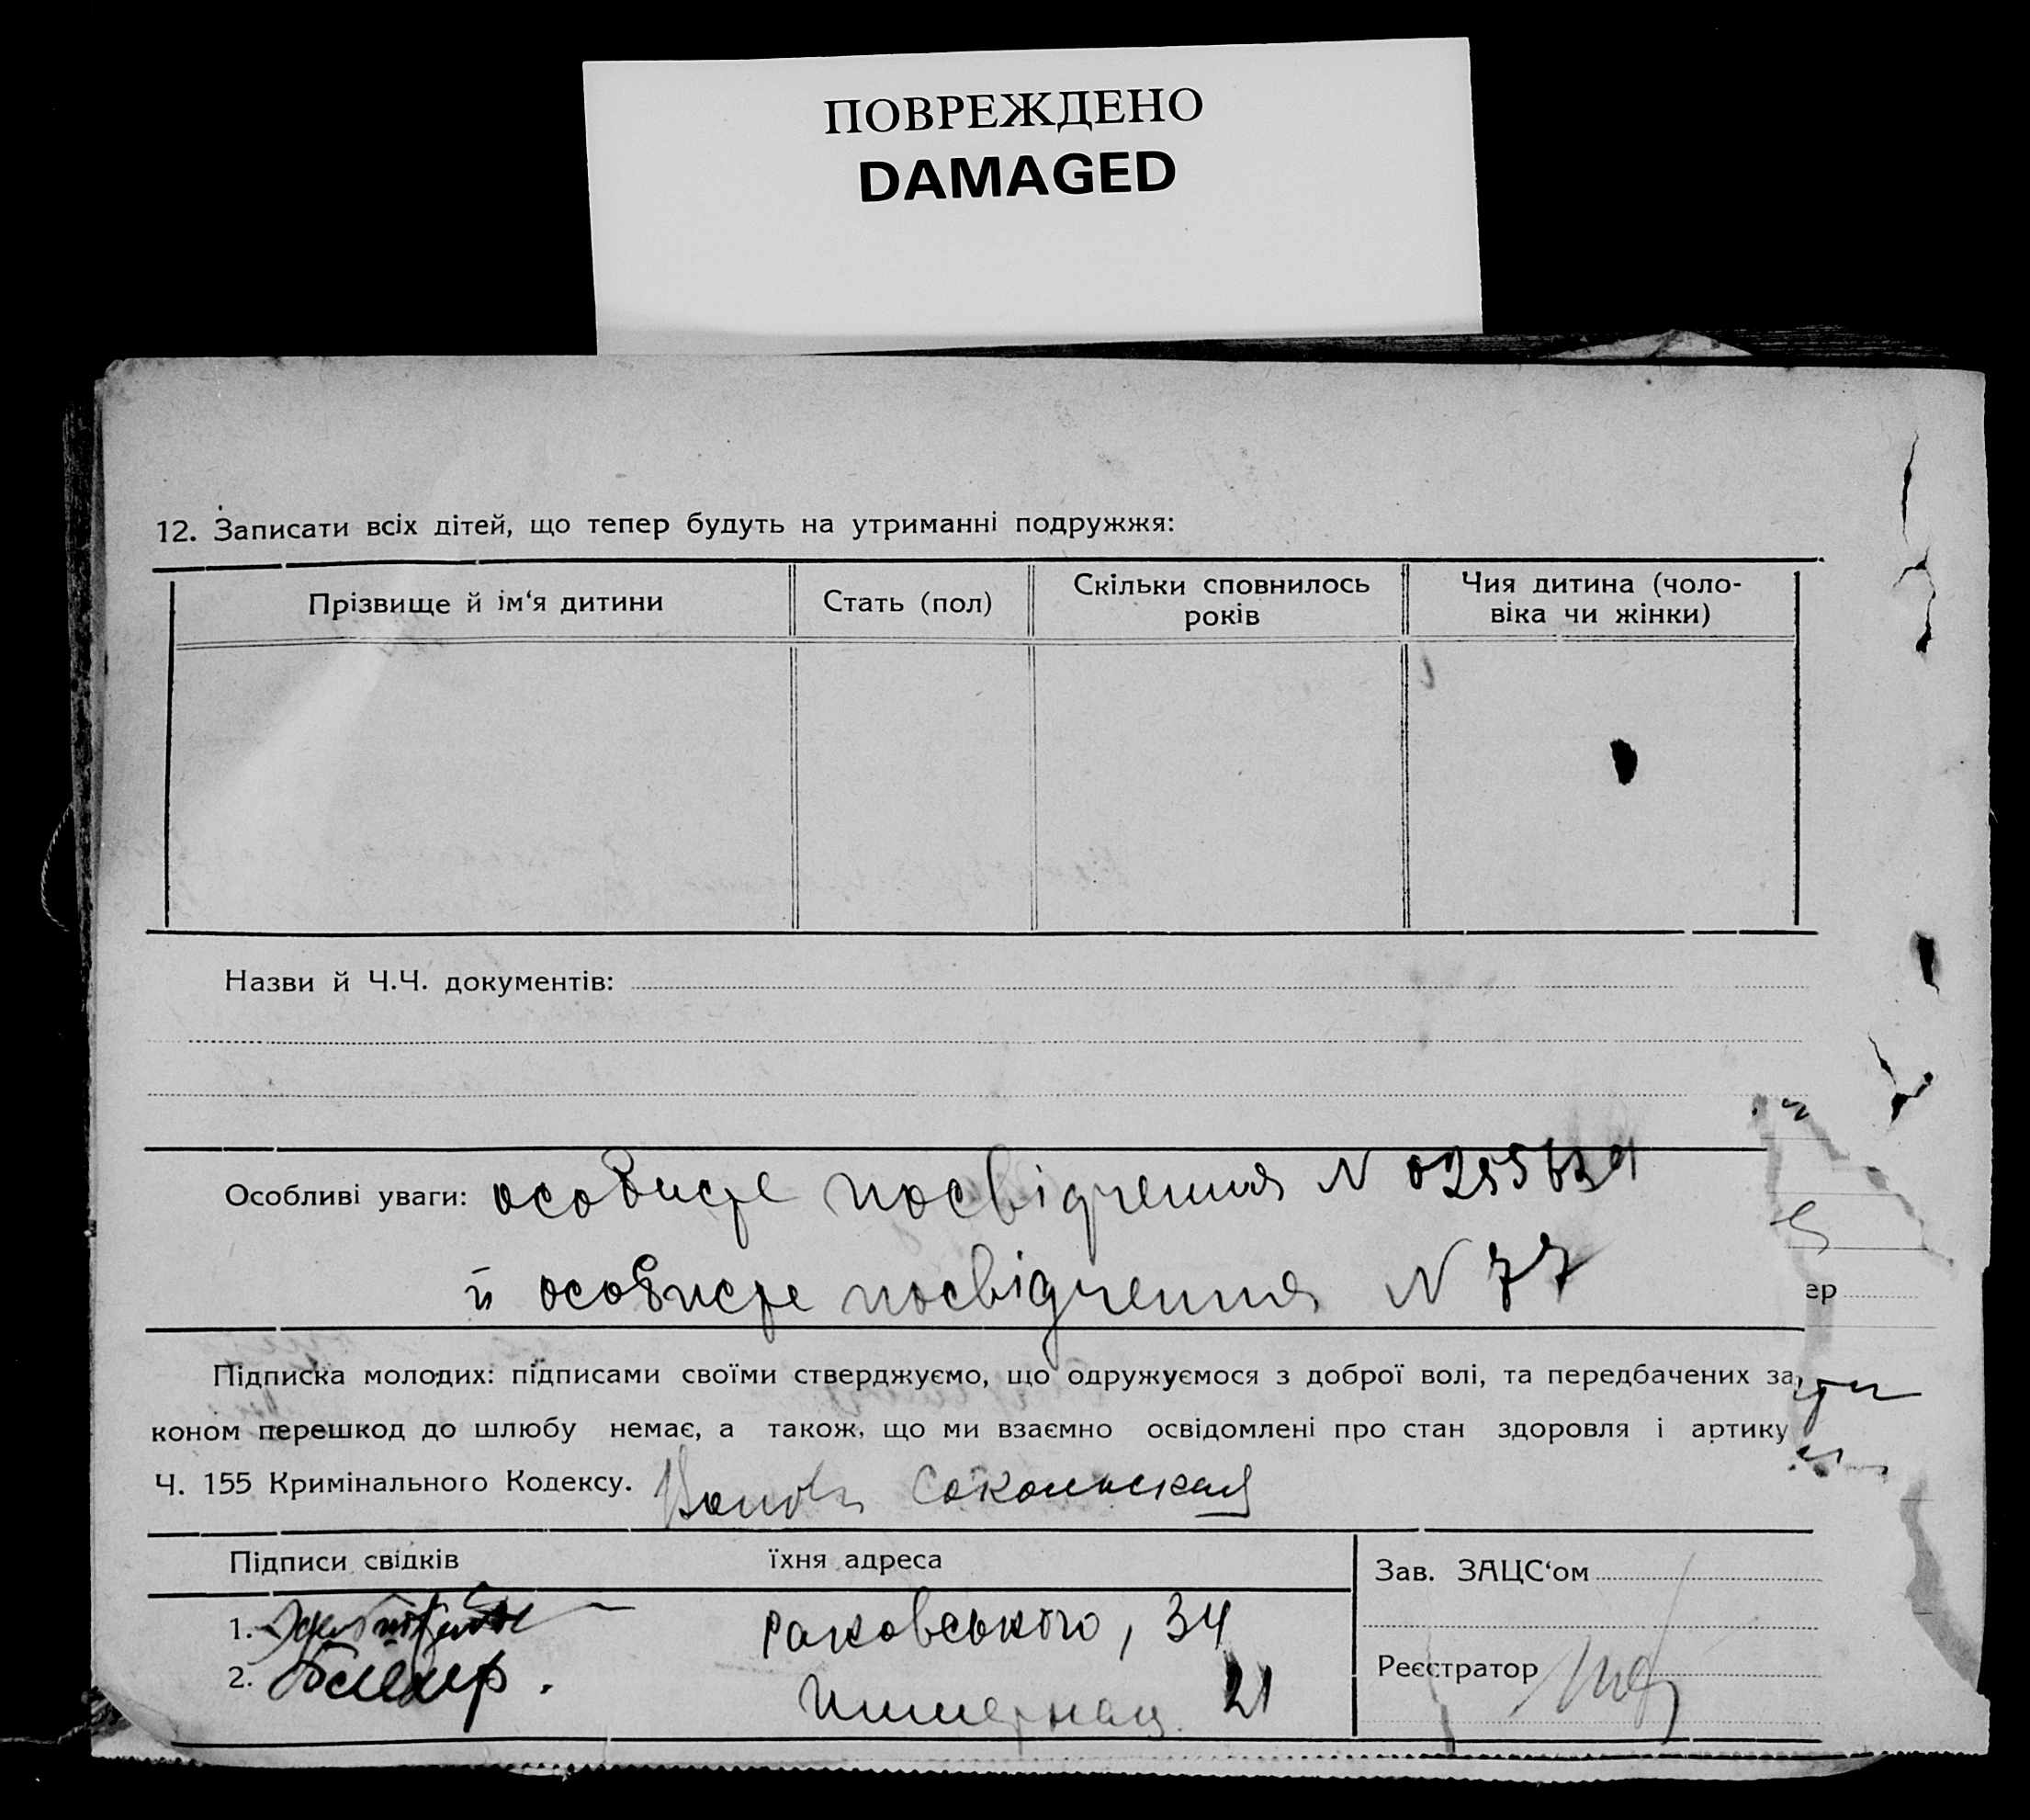 ПОВРЕЖДЕНО
DAMAGED
12. Записати всіх дітей, що тепер будуть на утриманні подружжя:
Прізвище й ім‘я дитини
Стать (пол)
Скільки сповнилось
років
Чия дитина (чоло-
віка чи жінки)
Назви й Ч.Ч. документів:
Особливі уваги: особисте посвідчення N
й особисте посвідчення N 77
ер
Підписка молодих: підписами своїми стверджуємо, що одружуємося з доброї волі, та передбачених за
коном перешкод до шлюбу немає, а також, що ми взаємно освідомлені про стан здоровля і артику
Ч. 155 Кримінального Кодексу. Сокольская
Підписи свідків їхня адреса
Зав. ЗАЦС‘ом
1. Раковського, 34
2. 21
Реєстратор